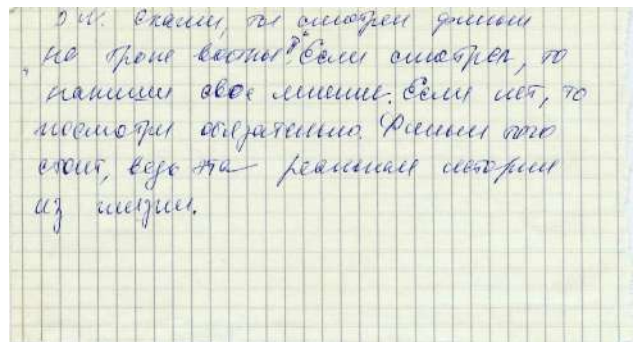 Скажи, ты смотрел фильм
на троне войны". Если смотрел, то
напиши свое мнение. Если нет, то
посмотри обязательно. Фильм того
стоит, ведь эта реальная история
из жизни.